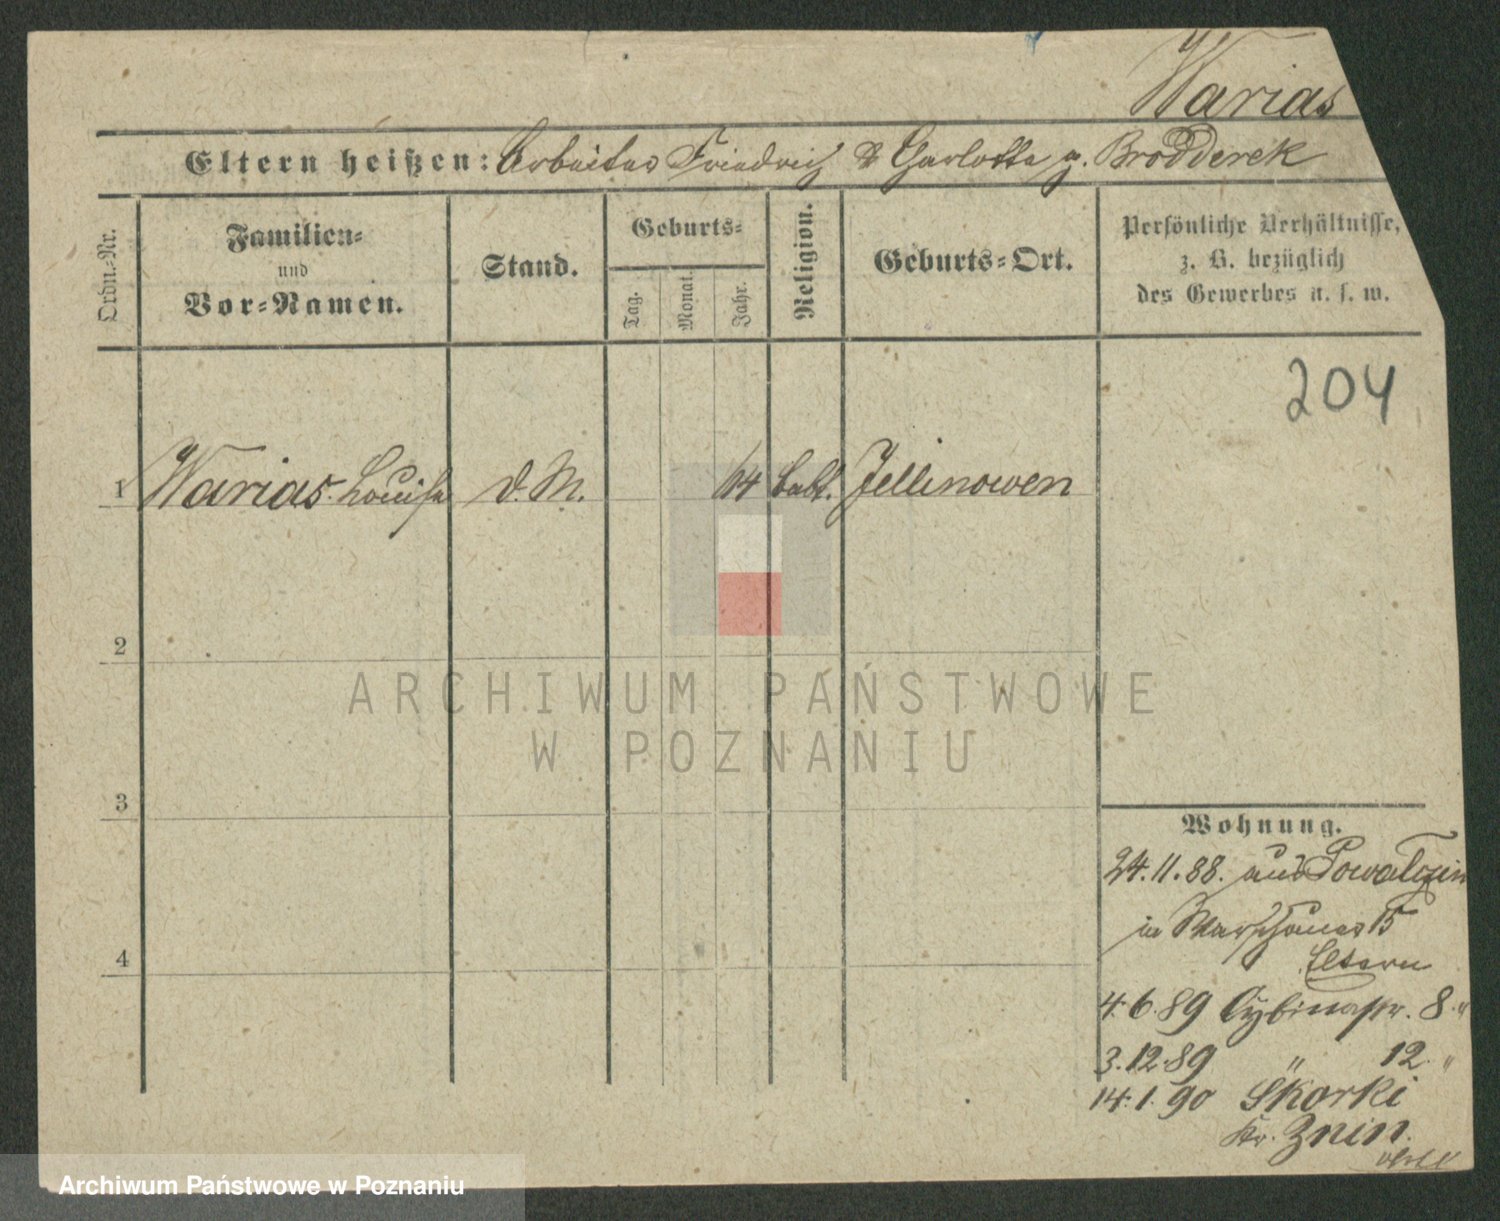 Warias
Eltern heißen: Arbeiter Friedrich & Charlotte g. Brodderek
Ordn.-Nr.
Familien-
und
Vor-Namen.
Stand.
Geburts-
Tag.
Monat.
Jahr.
Religion.
Geburts-Ort.
Persönliche Verhältnisse,
z. B. bezüglich
des Gewerbes u. s. w.
204
1 Warias Louise d. M. 64 Jellinowen
2
3
4
ARCHIWUM PAŃSTWOWE
W POZNANIU
Wohnung.
24.11.88. aus
in 15
Eltern
4.6.89 Cybinastr. 8. "
3.12.89 " 12. "
14.1.90 Skorki
Kr. Znin.
Archiwum Państwowe w Poznaniu